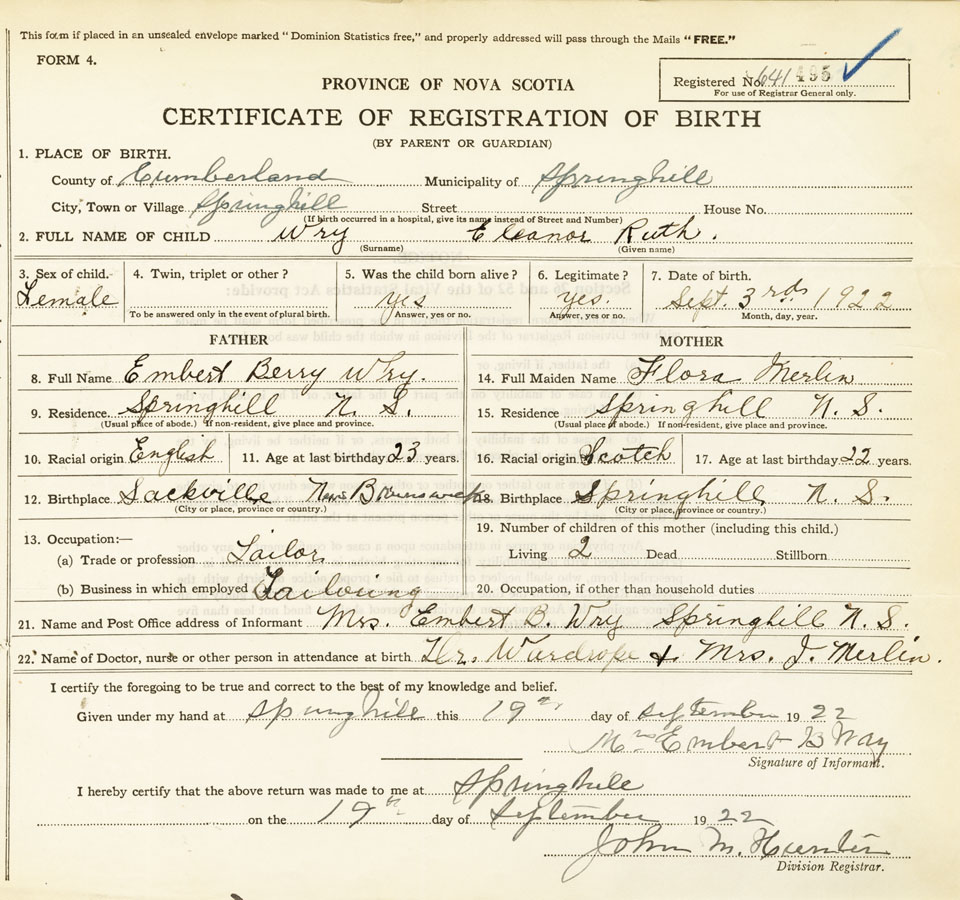 This form if placed in an unsealed envelope marked "Dominion Statistics free," and properly addressed will pass through the Mails "FREE."
FORM 4.
Registered No. 641495
For use of Registrar General only.
PROVINCE OF NOVA SCOTIA
CERTIFICATE OF REGISTRATION OF BIRTH
(BY PARENT OR GUARDIAN)
1. PLACE OF BIRTH.
County of Cumberland Municipality of Springhill
City, Town or Village Springhill Street House No.
(If birth occurred in a hospital, give its name instead of Street and Number)
2. FULL NAME OF CHILD Wry Eleanor Ruth.
(Surname) (Given name)
3. Sex of child. 4. Twin, triplet or other? 5. Was the child born alive? 6. Legitimate? 7. Date of birth.
Female yes yes. Sept. 3rd. 1922
To be answered only in the event of plural birth. Answer, yes or no. Answer, yes or no. Month, day, year.
FATHER MOTHER
8. Full Name Embert Berry Wry. 14. Full Maiden Name Flora Merlin
9. Residence. Springhill N. S. 15. Residence Springhill N. S.
(Usual place of abode.) If non-resident, give place and province. (Usual place of abode.) If non-resident, give place and province.
10. Racial origin English 11. Age at last birthday 23 years. 16. Racial origin Scotch 17. Age at last birthday 22 years.
12. Birthplace Sackville New Brunswick 18. Birthplace Springhill N. S.
(City or place, province or country.) (City or place, province or country.)
13. Occupation:— 19. Number of children of this mother (including this child.)
(a) Trade or profession Tailor. Living 2 Dead Stillborn
(b) Business in which employed Tailoring 20. Occupation, if other than household duties
21. Name and Post Office address of Informant Mrs. Embert B. Wry Springhill N. S.
22. Name of Doctor, nurse or other person in attendance at birth Dr. Wardrope & Mrs. J. Merlin.
I certify the foregoing to be true and correct to the best of my knowledge and belief.
Given under my hand at Springhill this 19th day of September 1922
Mrs Embert B Wry
Signature of Informant.
I hereby certify that the above return was made to me at Springhill
on the 19th day of September 1922
John M. Hunter
Division Registrar.